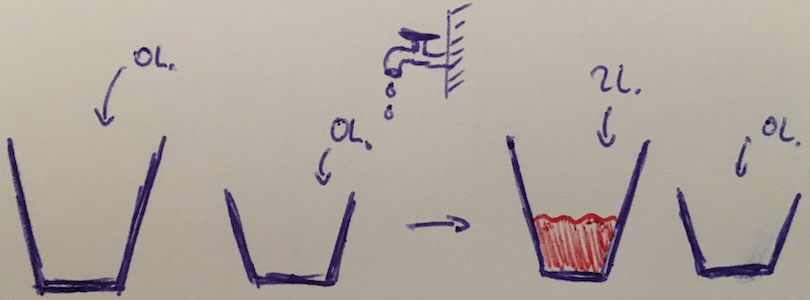 0L.
0L.
2L.
0L.